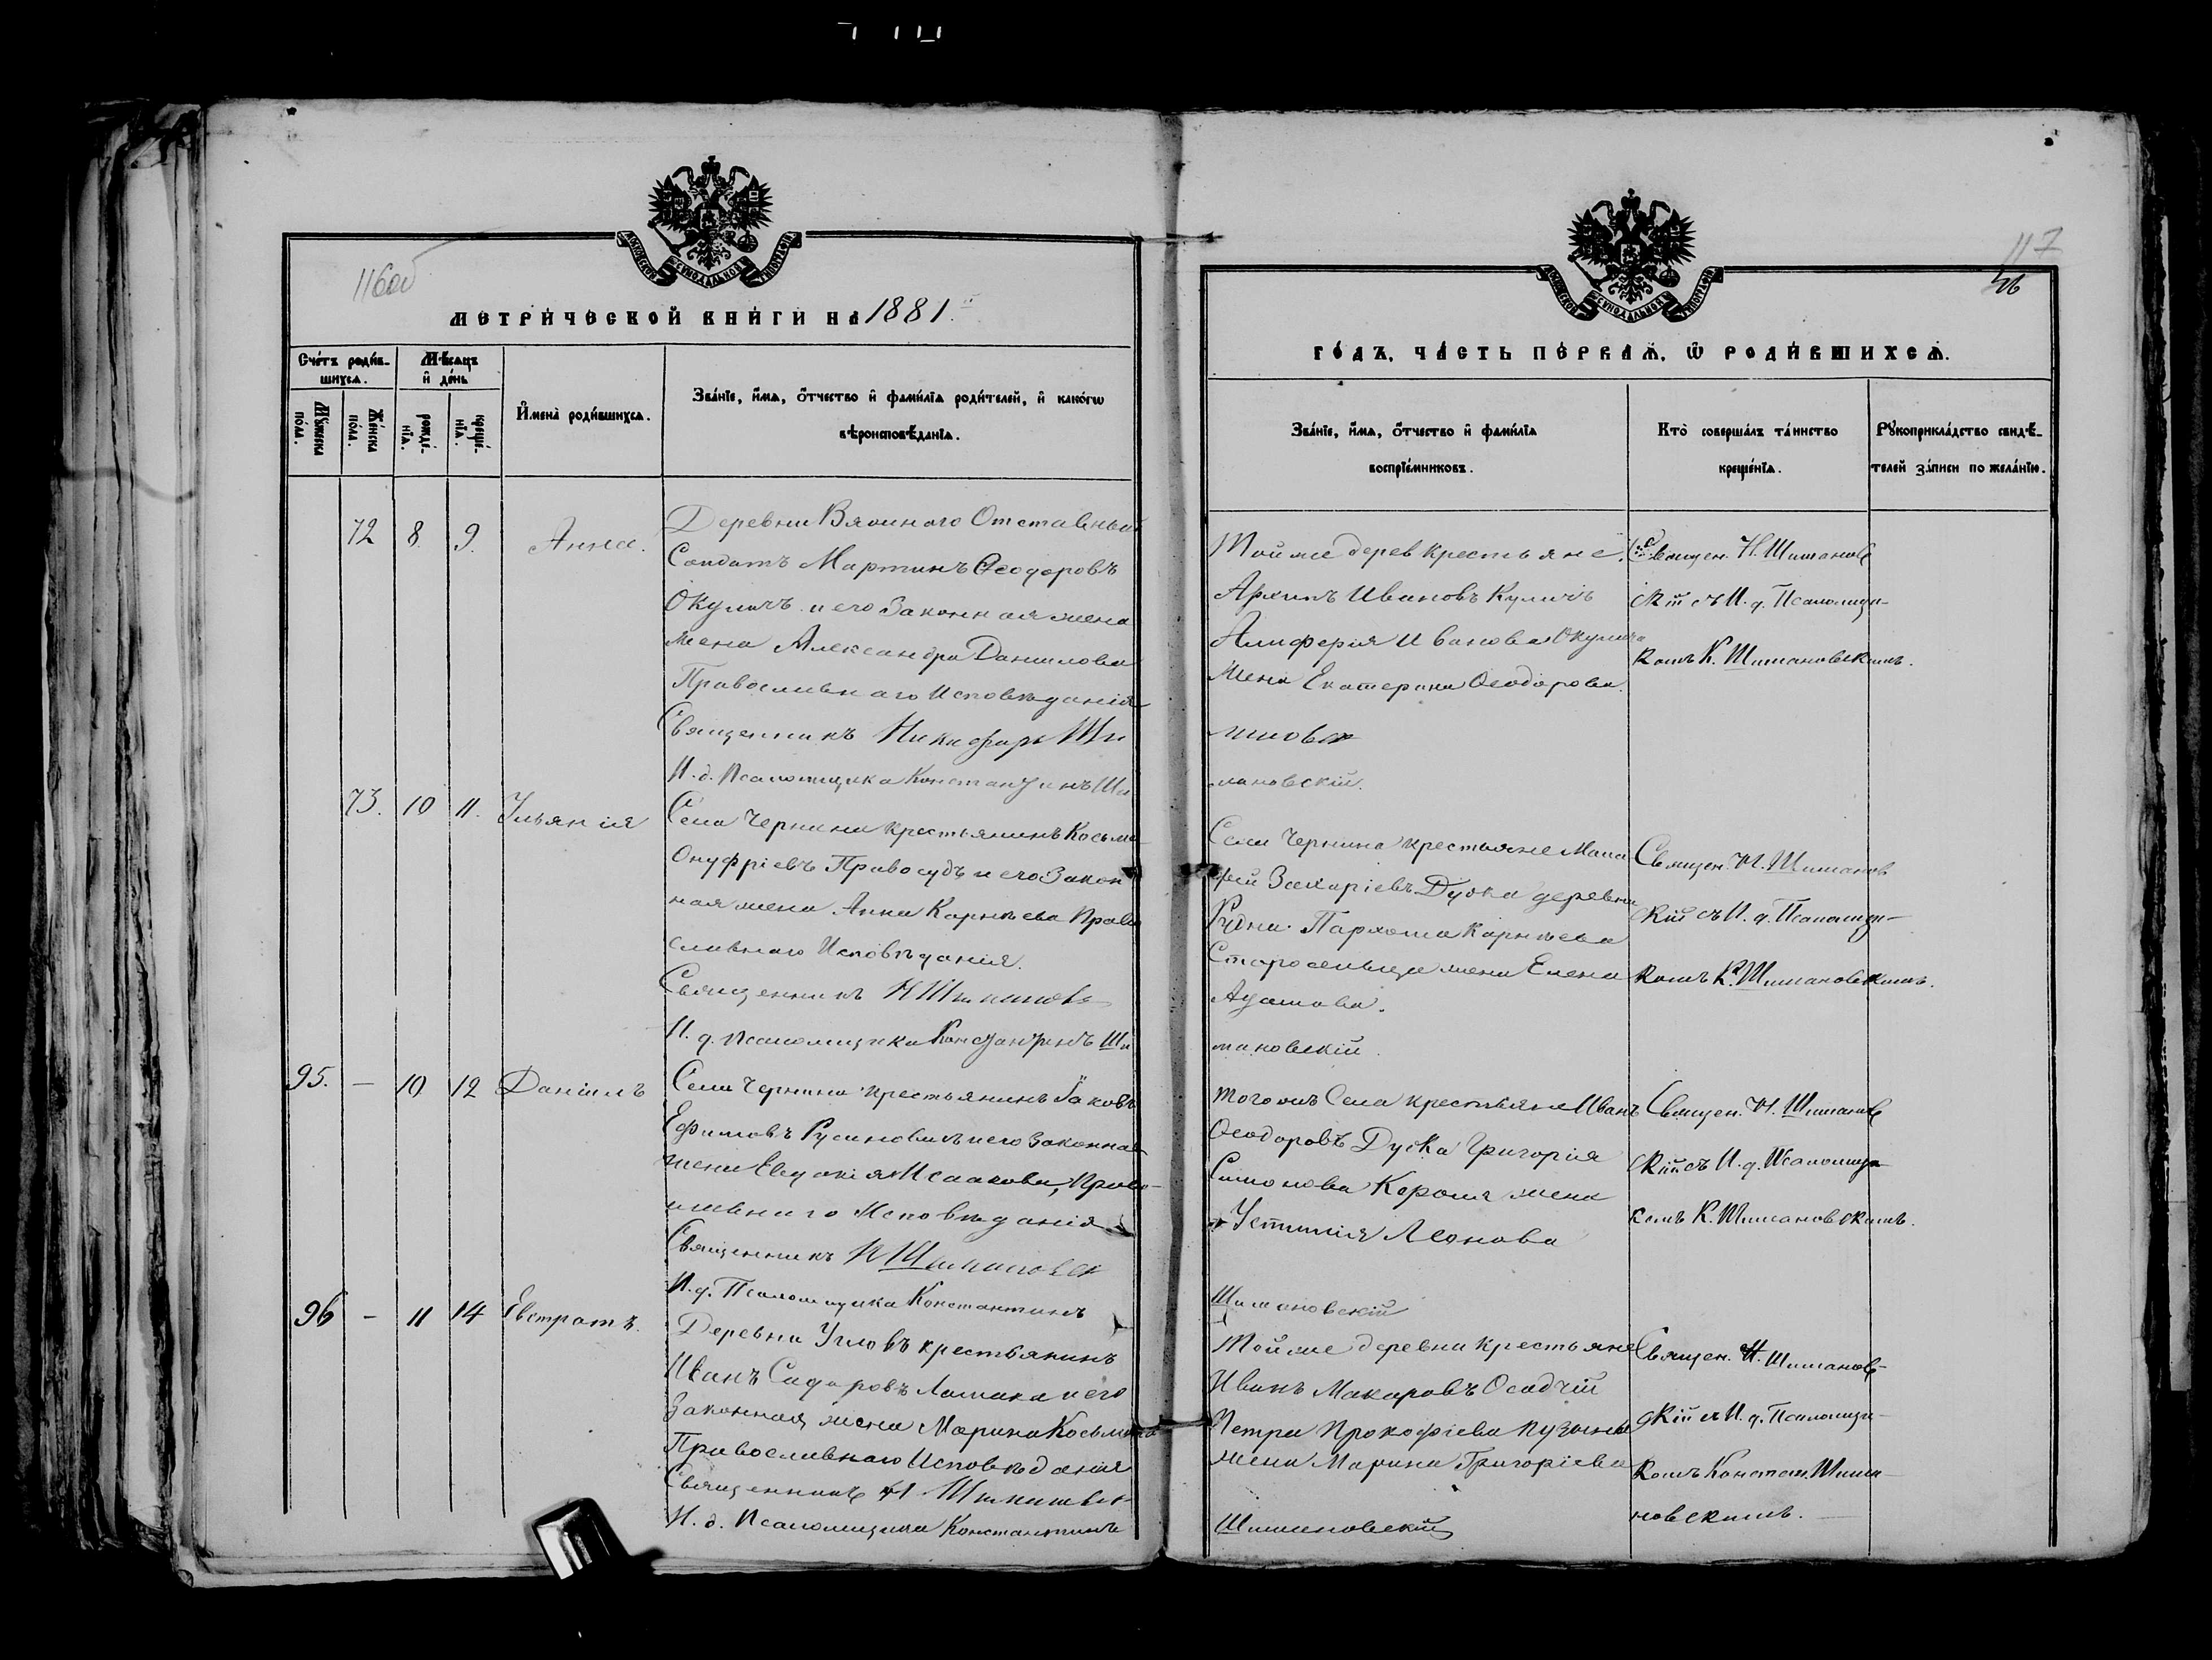 116об
МОСКОВСКОЙ СѴНОДАЛЬНОЙ ТИПОГРАФІИ
МЕТРИ́ЧЕСКОЙ КНИ́ГИ НА 1881.
Сче́тъ роди́вшихсѧ.
Мѣ́сѧцъ и҆ де́нь
Му́жеска по́ла.
Же́нска по́ла.
рожде́нїѧ.
креще́нїѧ.
И҆мена̀ роди́вшихсѧ.
Зва́нїе, и҆́мѧ, ѻ҆́тчество и҆ фами́лїѧ роди́телей, и҆ како́гѡ
вѣроисповѣ́данїѧ.
72 8 9. Анна.
Деревни Отставный
Солдатъ Мартинъ Ѳеодоровъ
Окуличъ и его Законная жена
жена Александра Данилова
Православнаго Исповѣданія
Священникъ Никифоръ Ши
И. д. Псаломщика Константинъ Ши
73. 10 11. Ульянія
Села Чернина крестьянинъ Косьма
Онуфріевъ Правосудъ и его Закон
ная жена Анна Карнѣева Право
славнаго Исповѣданія.
Священникъ Н Шиманов
И. д. Псаломщика Константинъ Ши
95. — 10 12 Даніилъ
Села Чернина крестьянинъ Іаковъ
Ефимовъ Русиновичъ и его законная
жена Евдокія Исаакова, Право-
славнаго Исповѣданія
Священникъ Н Шимановск
И. д. Псаломщика Константинъ
96 — 11 14 Евстратъ.
Деревни Угловъ крестьянинъ
Иванъ Сидоровъ и его
Законная жена Марина Косьмина
Православнаго Исповѣданія
Священникъ Н Шимановск
И. д. Псаломщика Константинъ
117
МОСКОВСКОЙ СѴНОДАЛЬНОЙ ТИПОГРАФІИ
ГО́ДЪ, ЧА́СТЬ ПЕ́РВАѦ, Ѡ҆ РОДИ́ВШИХСѦ.
Зва́нїе, и҆́мѧ, ѻ҆́тчество и҆ фами́лїѧ
воспрїе́мниковъ.
Кто̀ соверша́лъ та́инство
креще́нїѧ.
Рꙋкоприкла́дство свидѣ́-
телей за́писи по жела́нїю.
Той же дерев крестьяне.
Архипъ Ивановъ Куличъ
Алиферія Иванова Окулича
жена Екатерина Ѳеодорова.
мановскій.
Священ. Н. Шиманов
скій съ И. д. Псаломщи-
комъ К. Шимановскимъ.
Села Чернина крестьяне
фей Захаріевъ Дуска деревни
Рудни Пархома Карнѣева
Старосельца жена Елена
Адамова.
мановскій.
Священ. Н. Шиманов
скій съ И. д. Псаломщи-
комъ К. Шимановскимъ.
Того жъ Села крестьяне Иванъ
Ѳеодоровъ Дуска Григорія
Симонова Короля жена
Устинія Леонова
Шимановскій
Священ. Н. Шиманов
скій съ И. д. Псаломщи-
комъ К. Шимановскимъ.
Той же деревни крестьяне
Иванъ Макаровъ Осадчій
Петра Прокофіева
жена Марина Григоріева
Шимановскій
Священ. Н. Шиманов-
скій съ И. д. Псаломщи-
комъ Констан. Шима-
новскимъ.